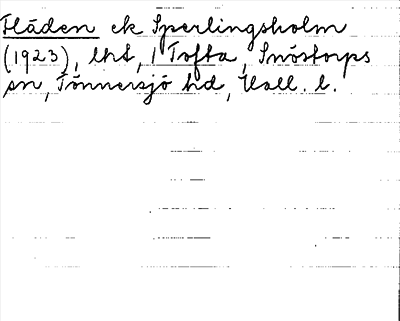 Fläden ek Sperlingsholm
(1923), lht, / Tofta, Snöstorps
sn, Tönnersjö hd, Hall. l.